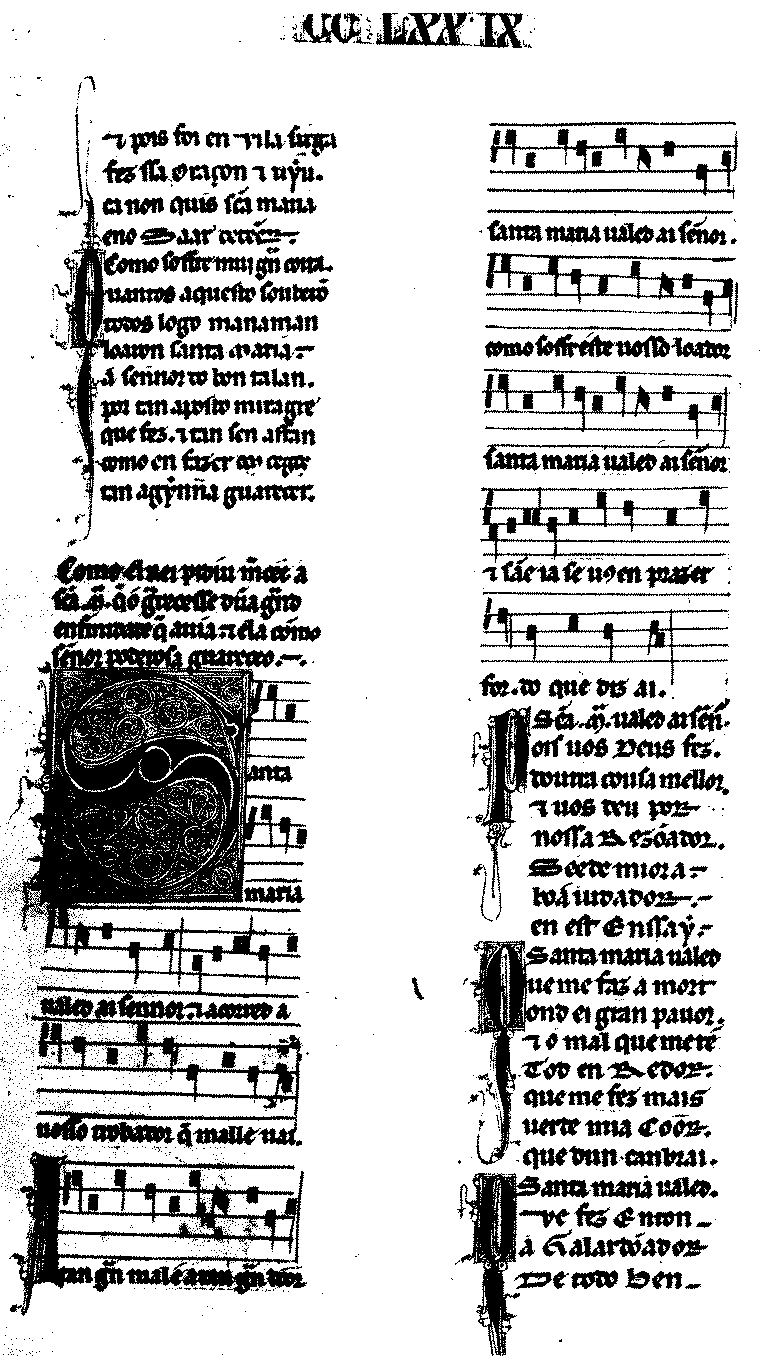 CC LXX IX
⁊ pois foi en vila sirga
fez ssa oraçon ⁊ uỹu.
ca non quis sc̃a maria
eno
Como soffre mui gñ coita.
Quantos aquesto souberõ
todos logo manaman
loaron santa maria
a sennor do bon talan.
por tan aposto miragre
que fez. ⁊ tan sen affan
como en fazer
tan agỹnna guarecer.
Como el rei pediu m̃ce a
sc̃a .m̃. q̃ o guarecesse dũa gñd
enfirmidade q̃ auia ⁊ ela como
sẽnor poderosa guareceo.
Santa
maria
ualed ai sennor ⁊ acorred a
uosso trobador q̃ malle uai.
A tan gñ mal e a tan gñ door
santa maria ualed ai sẽnor.
como soffr este uosso loador
santa maria ualed ai sẽnor
⁊ sãe ia se uꝯ en prazer
for. do que diz ai.
Sc̃a .m̃. ualed ai sẽn̄.
Pois uos Deus fez.
doutra cousa mellor.
⁊ uos deu por
nossa Rezõador.
Seede miora
bõa iudador
en est Enssaỹ.
Santa maria ualed
Que me faz a mort
ond ei gran pauor.
⁊ o mal que me tẽ
Tod en Redor.
que me fez mais
uerde mia Coor.
que dun canbrai.
Santa maria ualed.
Que fez Enton
a Galardõador
De todo ben